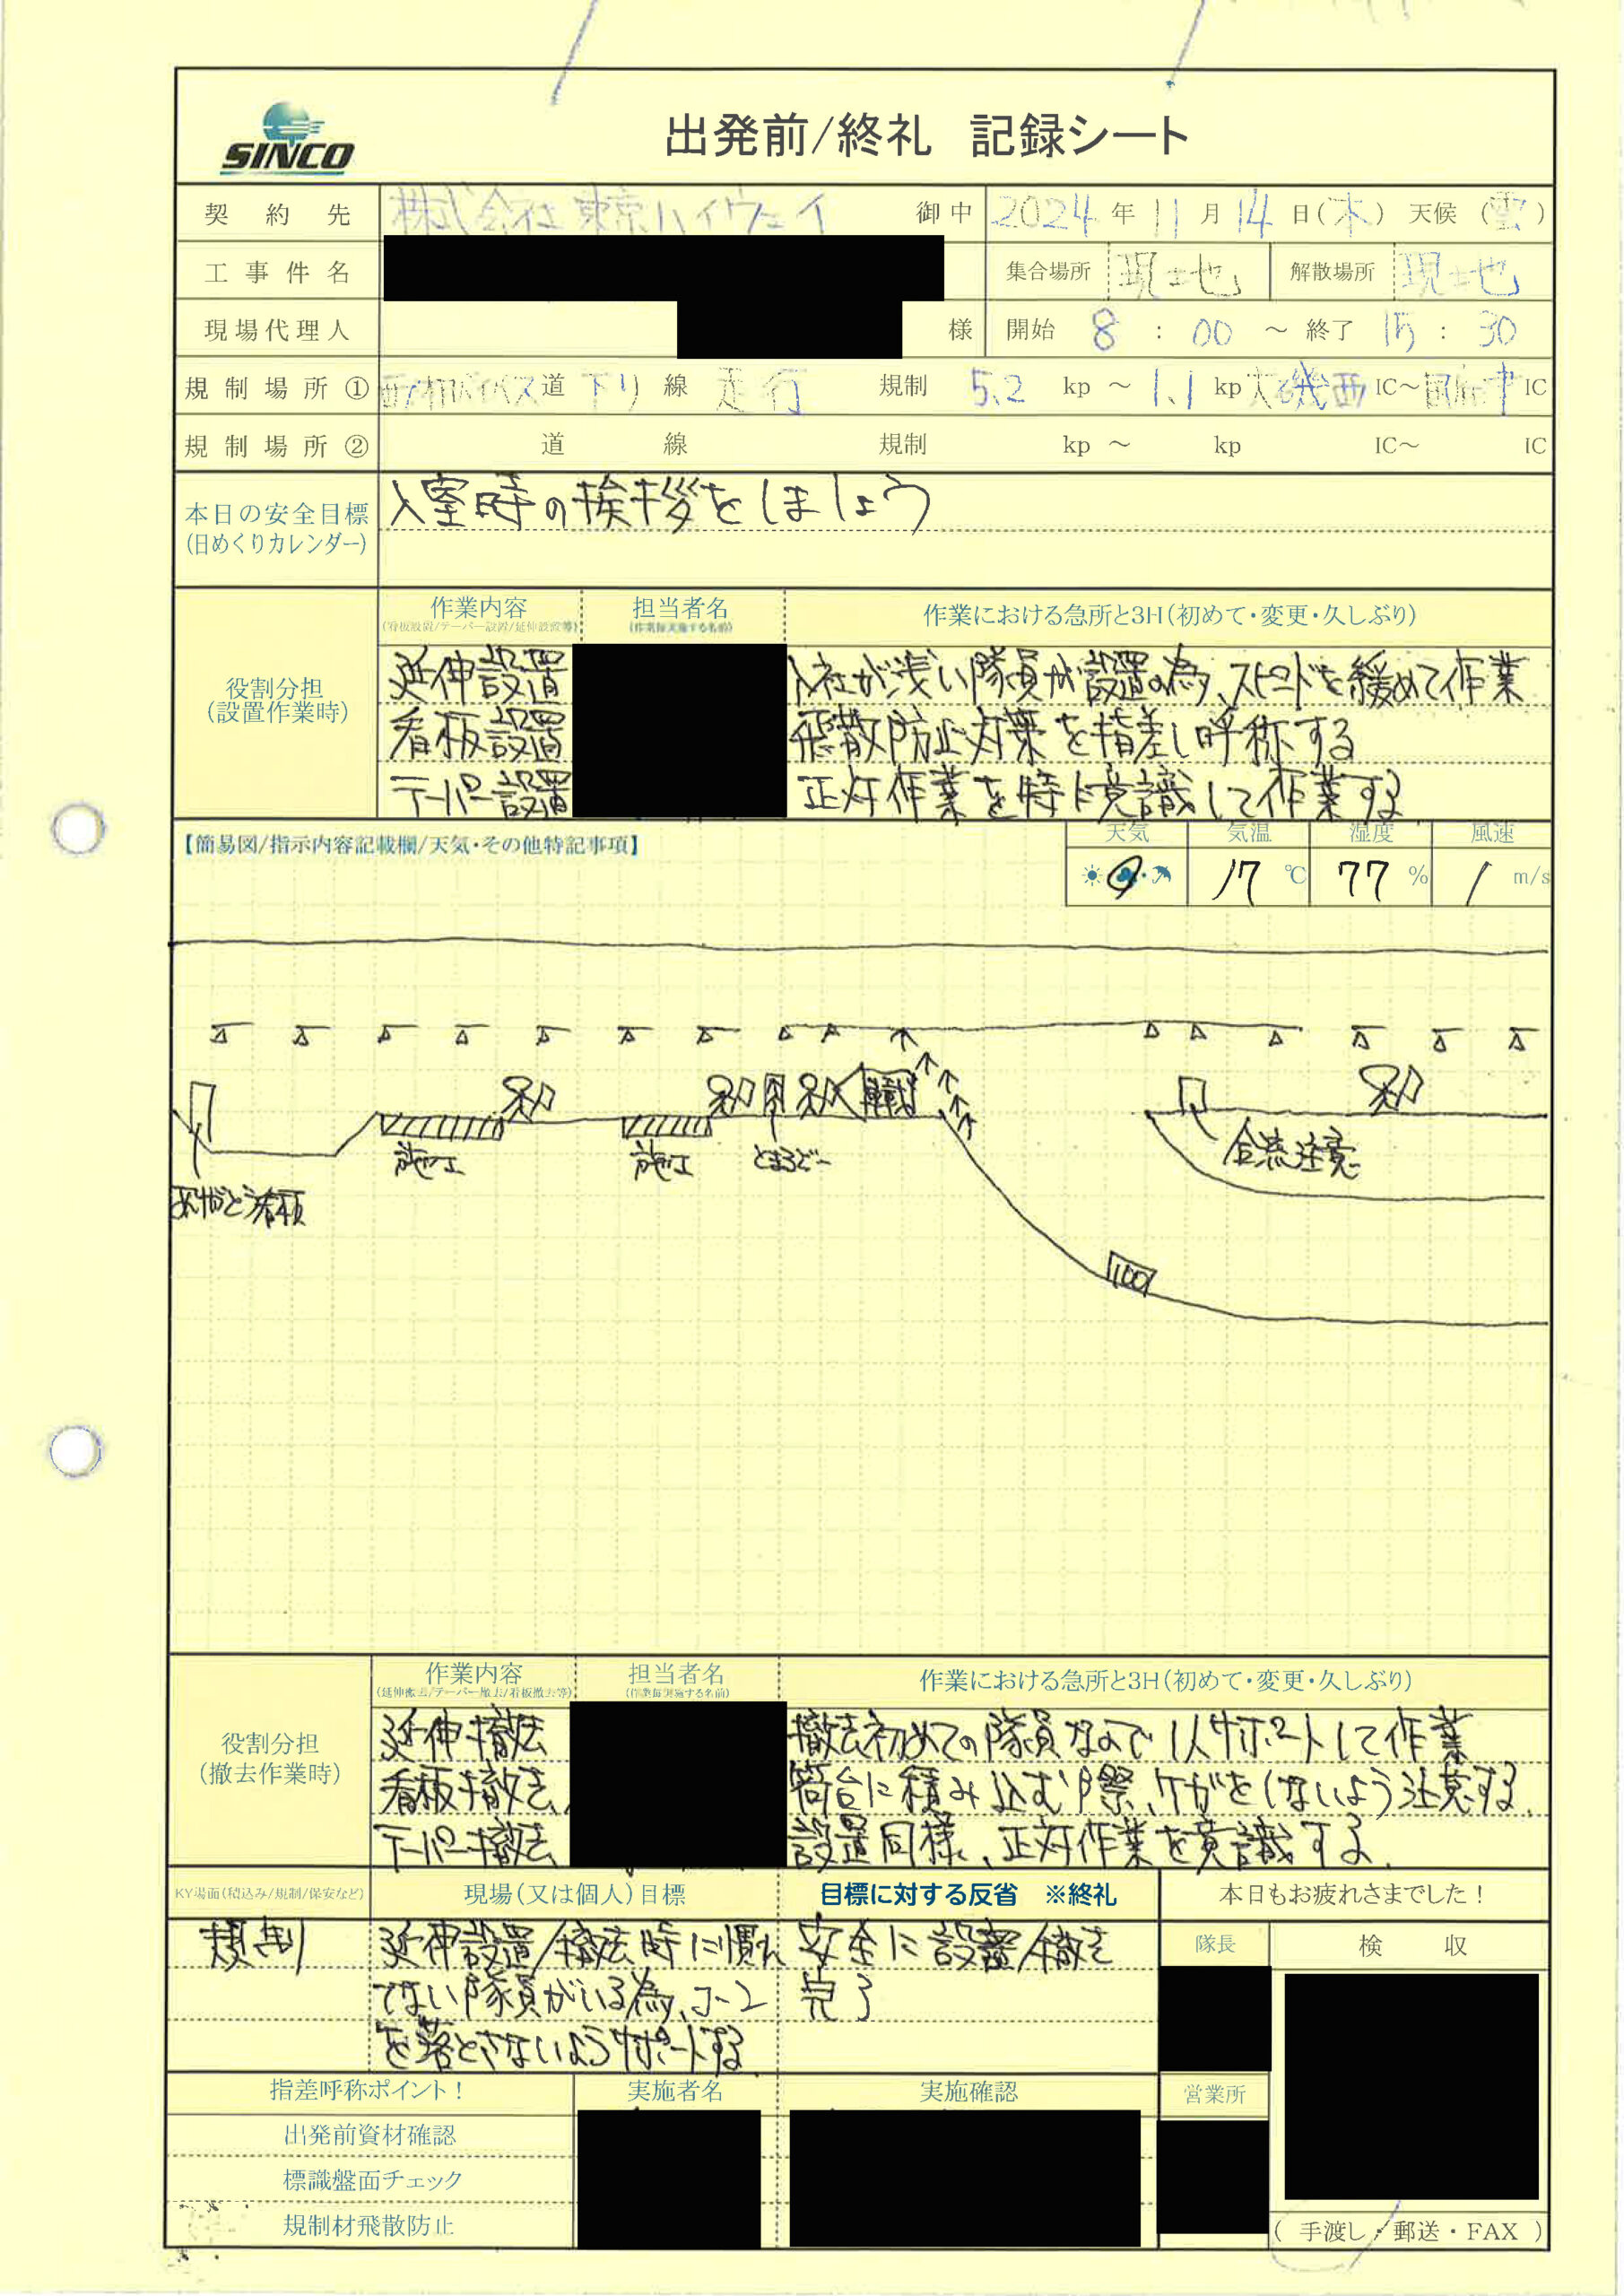 SINCO
出発前/終礼 記録シート
契約先 株式会社東京ハイウェイ 御中 2024年11月14日(木) 天候(雲)
工事件名 集合場所 現地 解散場所 現地
現場代理人 様 開始 8:00 ～ 終了 15:30
規制場所① 西湘バイパス道 下り線 走行 規制 5.2 kp ～ 1.1 kp 大磯西 IC～ IC
規制場所② 道 線 規制 kp ～ kp IC～ IC
本日の安全目標 入室時の挨拶をしましょう
(日めくりカレンダー)
作業内容 担当者名 作業における急所と3H(初めて・変更・久しぶり)
(看板設置/テーパー設置/延伸設置等) (作業毎実施する名前)
役割分担
(設置作業時)
延伸設置 入社が浅い隊員が設置の為、スピードを緩めて作業
看板設置 飛散防止対策を指差し呼称する
テーパー設置 正対作業を特に意識して作業する
【簡易図/指示内容記載欄/天気・その他特記事項】
天気 気温 湿度 風速
17℃ 77% 1 m/s
施工 施工 とまるぞー 合流注意
100
作業内容 担当者名 作業における急所と3H(初めて・変更・久しぶり)
(延伸撤去/テーパー撤去/看板撤去等) (作業毎実施する名前)
役割分担
(撤去作業時)
延伸撤去 撤去初めての隊員なので1人サポートして作業
看板撤去 荷台に積み込む際、ケガをしないよう注意する。
テーパー撤去 設置同様、正対作業を意識する。
KY場面(積込み/規制/保安など) 現場(又は個人)目標 目標に対する反省 ※終礼 本日もお疲れさまでした！
規制 延伸設置/撤去時に慣れ 安全に設置/撤去 隊長 検収
てない隊員がいる為、コーン 完了
を落とさないようサポートする
指差呼称ポイント！ 実施者名 実施確認 営業所
出発前資材確認
標識盤面チェック
規制材飛散防止
(手渡し・郵送・FAX)